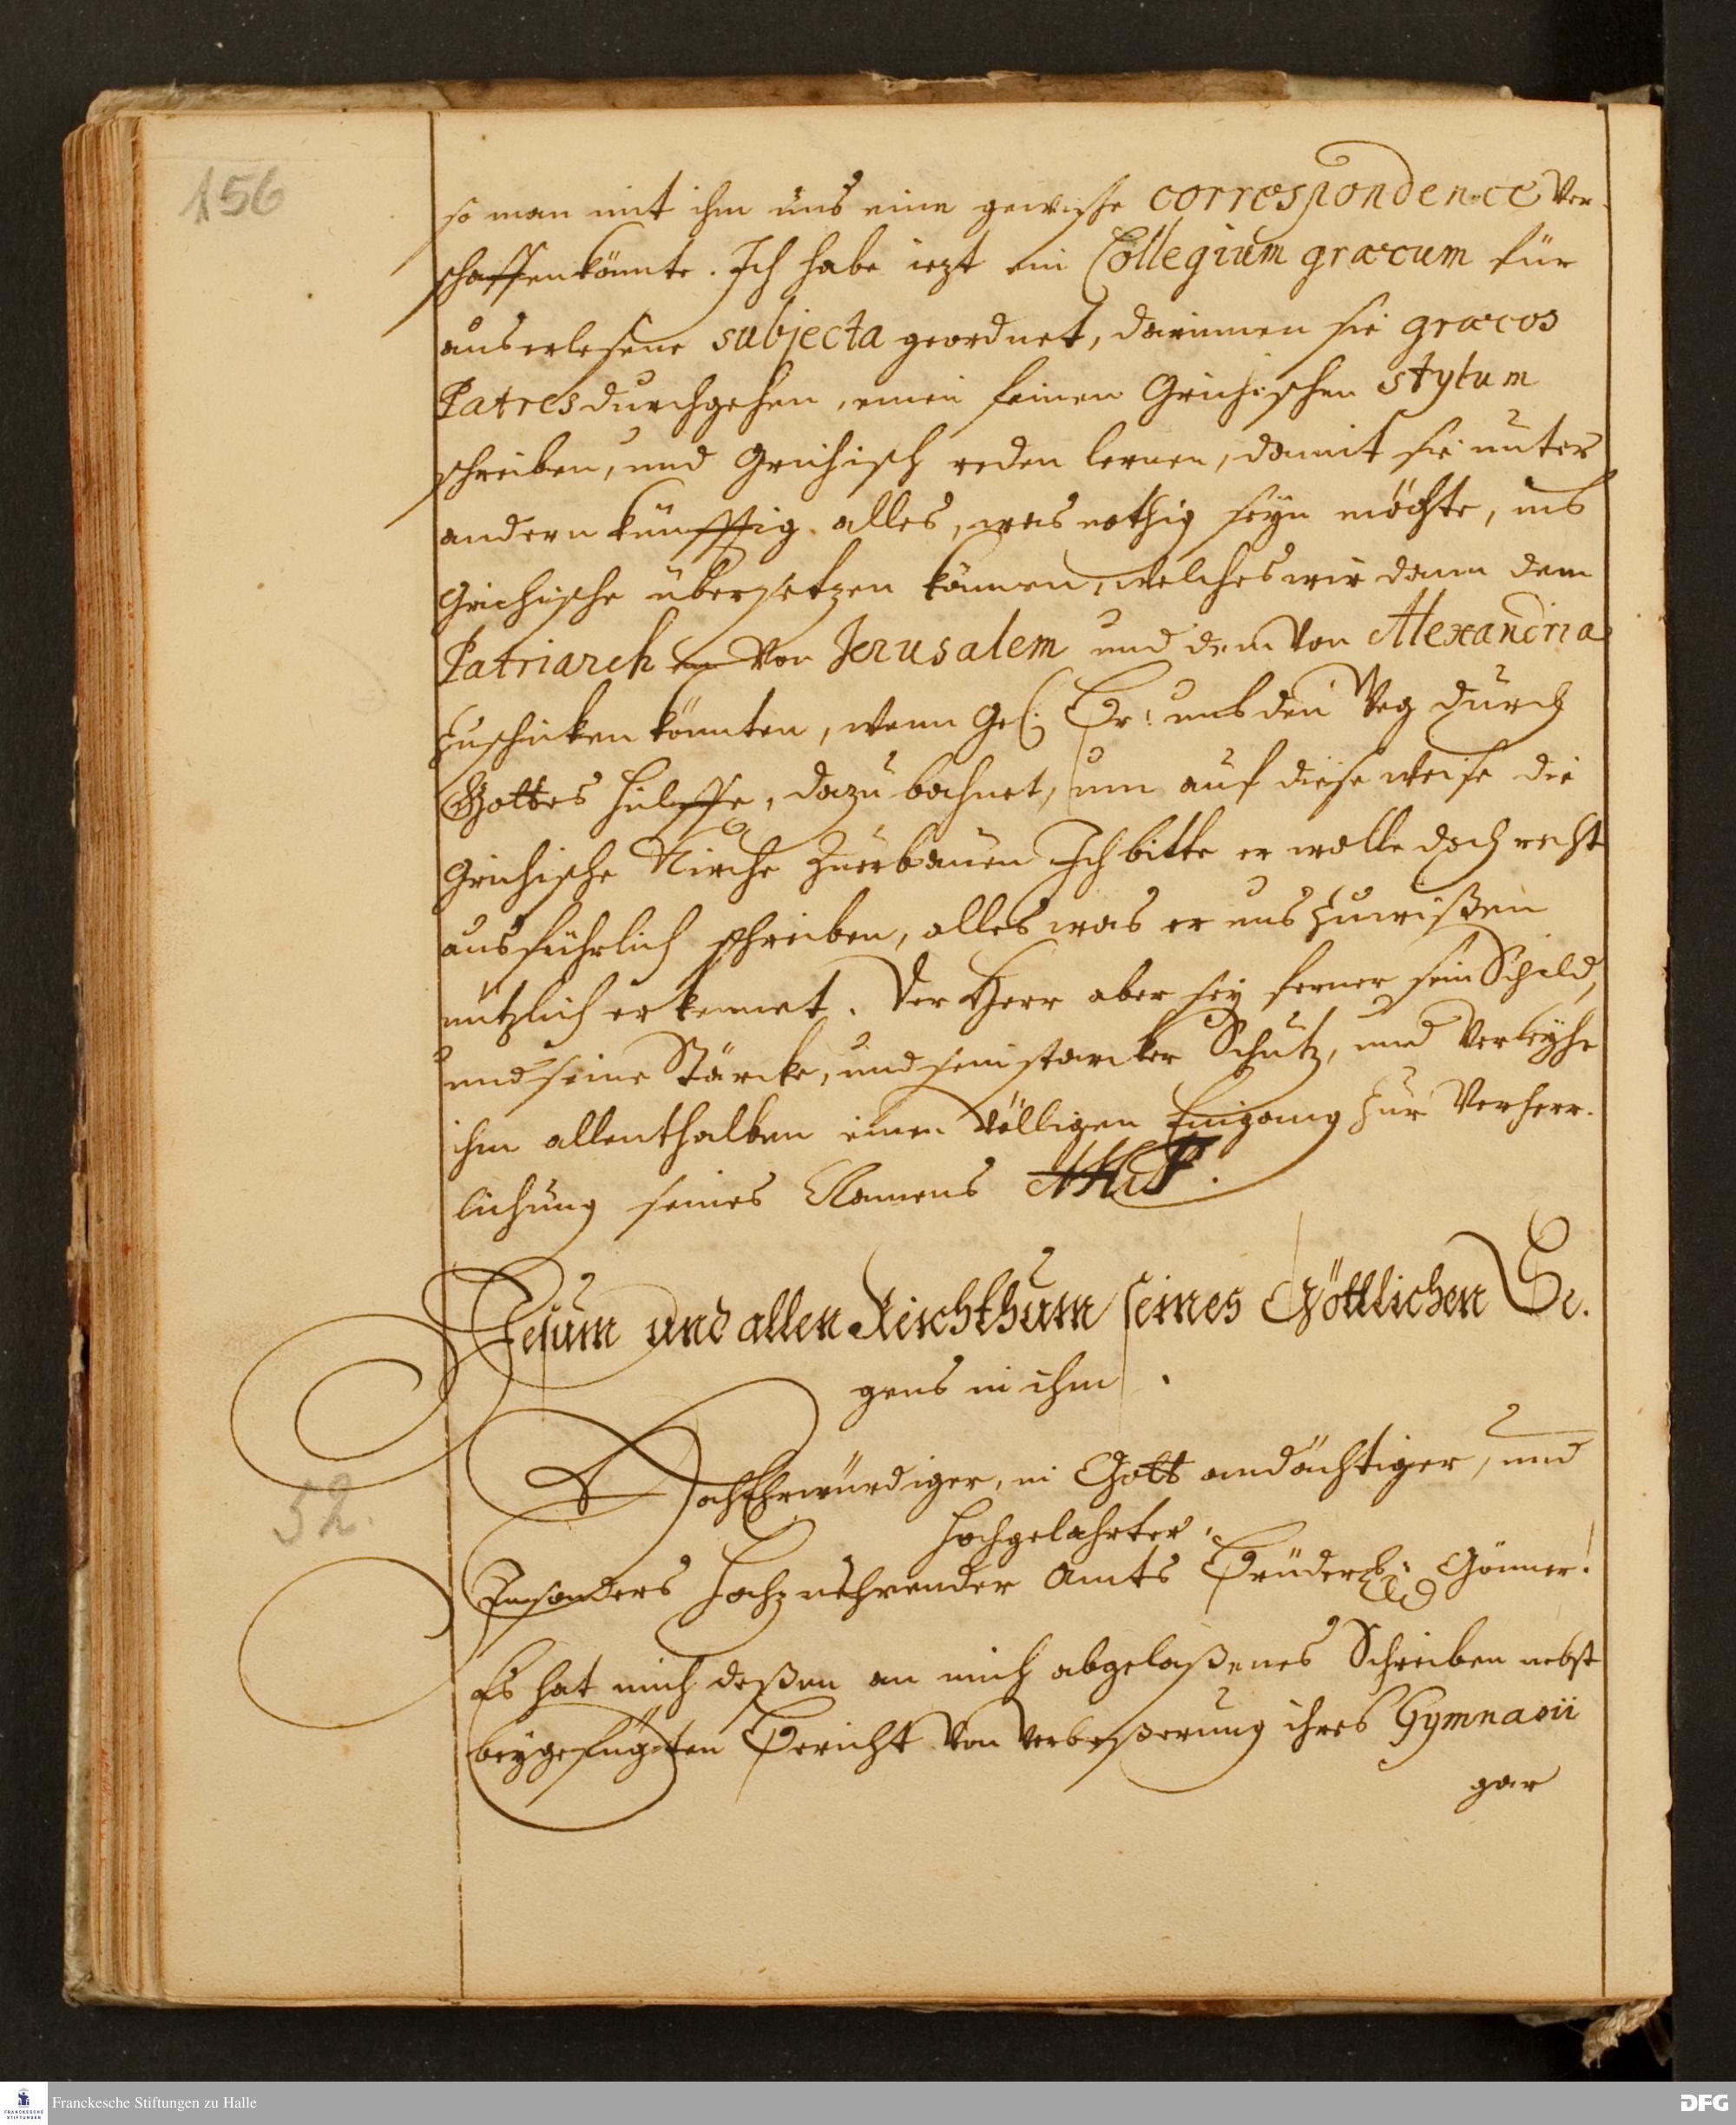 156
so man mit ihm uns eine gewisse correspondence ver-
schaffen könnte. Ich habe iezt ein Collegium græcum für
auserlesene subjecta geordnet, darinnen sie græcos
Patres durchgehen, einen feinen Grichischen stylum
schreiben, und Grichisch reden lernen, damit sie unter
andern künfftig alles, was nothig seyn möchte, ins
Grichische übersetzen können, welches wir dann dem
Patriarchen von Jerusalem und dem von Alexandria
zuschicken könnten, wenn Gel. Br. uns den Weg durch
Gottes Hülffe, dazu bahnet, um auf diese weise die
Grichische Kirche zuerbauen Ich bitte er wolle doch recht
ausführlich schreiben, alles was er uns zuwißen
nützlich erkennet. Der Herr aber sey ferner sein Schild,
und seine Stärcke, und sein starcker Schutz, und verleyhe
ihm allenthalben einen völligen Eingang zur Verherr-
lichung seines Namens AHF.
Jesum und allen Reichthum seines Göttlichen Se-
gens in ihm.
52.
HochEhrwürdiger, in Gott andächtiger, und
Hochgelahrter,
Insonders Hochzuehrender Amts Bruder Gönner!
Es hat mich deßen an mich abgelaßenes Schreiben nebst
beygefügten Bericht von verbeßerung ihres Gymnasii
gar
Franckesche Stiftungen zu Halle
FRANCKESCHE STIFTUNGEN
DFG